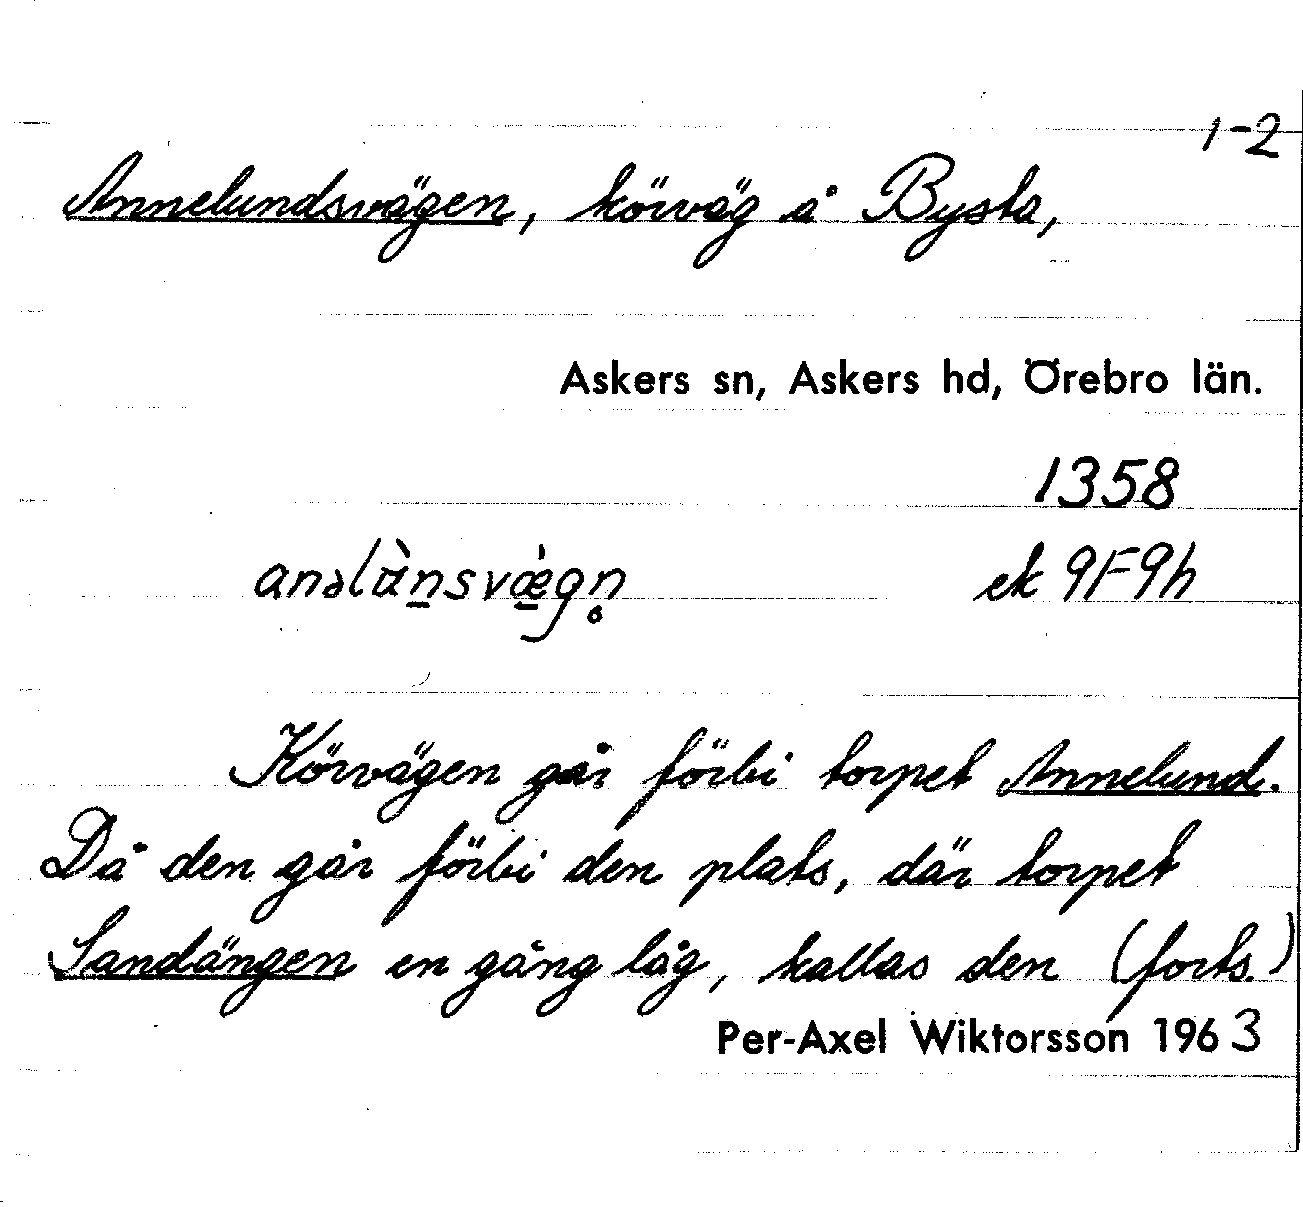 1-2
Annelundsvägen, körväg å Bysta,
Askers sn, Askers hd, Örebro län.
1358
anəlùn̲svæ̀gn̥ ek 9F9h
Körvägen går förbi torpet Annelund.
Då den går förbi den plats, där torpet
Sandängen en gång låg, kallas den (forts.)
Per-Axel Wiktorsson 1963